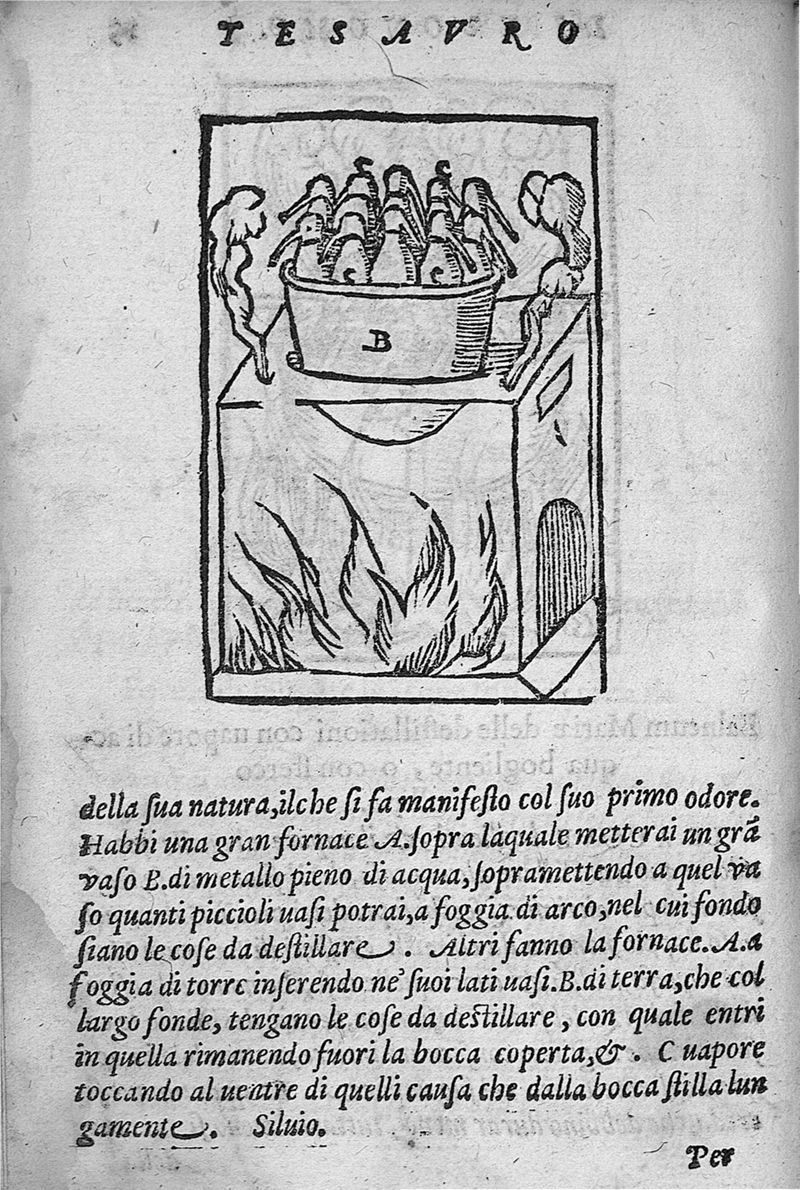 TESAVRO
B
della ſua natura, ilche ſi fa manifeſto col ſuo primo odore.
Habbi una gran fornace A. ſopra laquale metterai un grã
vaſo B. di metallo pieno di acqua, ſopramettendo a quel va
ſo quanti piccioli uaſi potrai, a foggia di arco, nel cui fondo
ſiano le coſe da deſtillare. Altri fanno la fornace. A. a
foggia di torre inſerendo ne' ſuoi lati uaſi. B. di terra, che col
largo fonde, tengano le coſe da deſtillare, con quale entri
in quella rimanendo fuori la bocca coperta, &. C uapore
toccando al uentre di quelli cauſa che dalla bocca ſtilla lun
gamente. Siluio.
Per